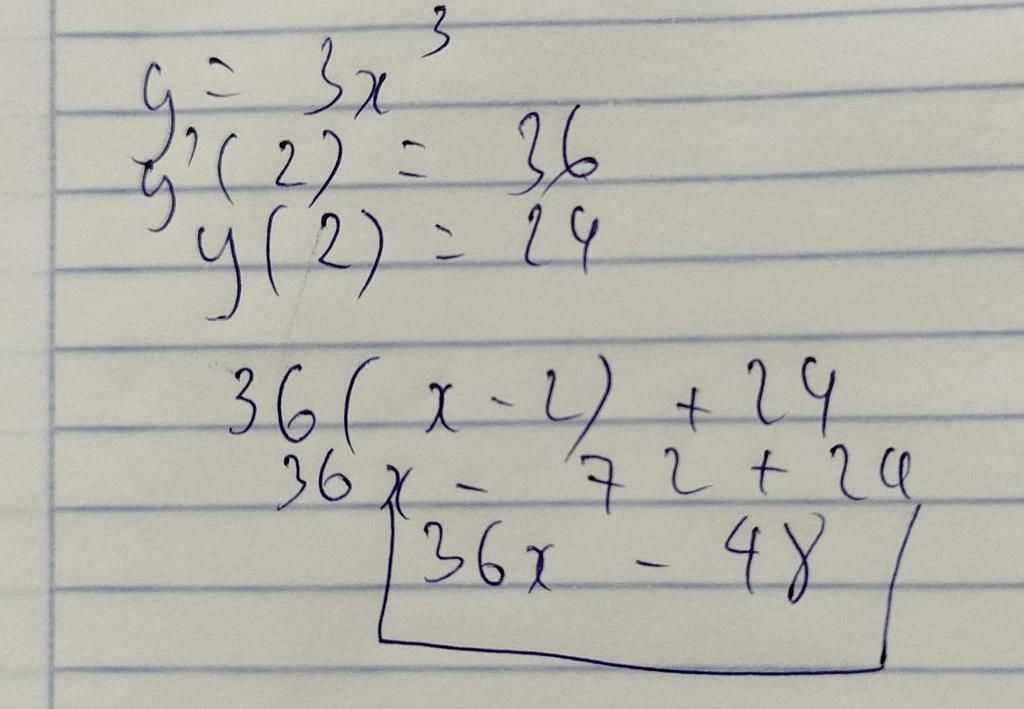 y = 3x³
y'(2) = 36
y(2) = 24
36(x - 2) + 24
36x - 72 + 24
36x - 48